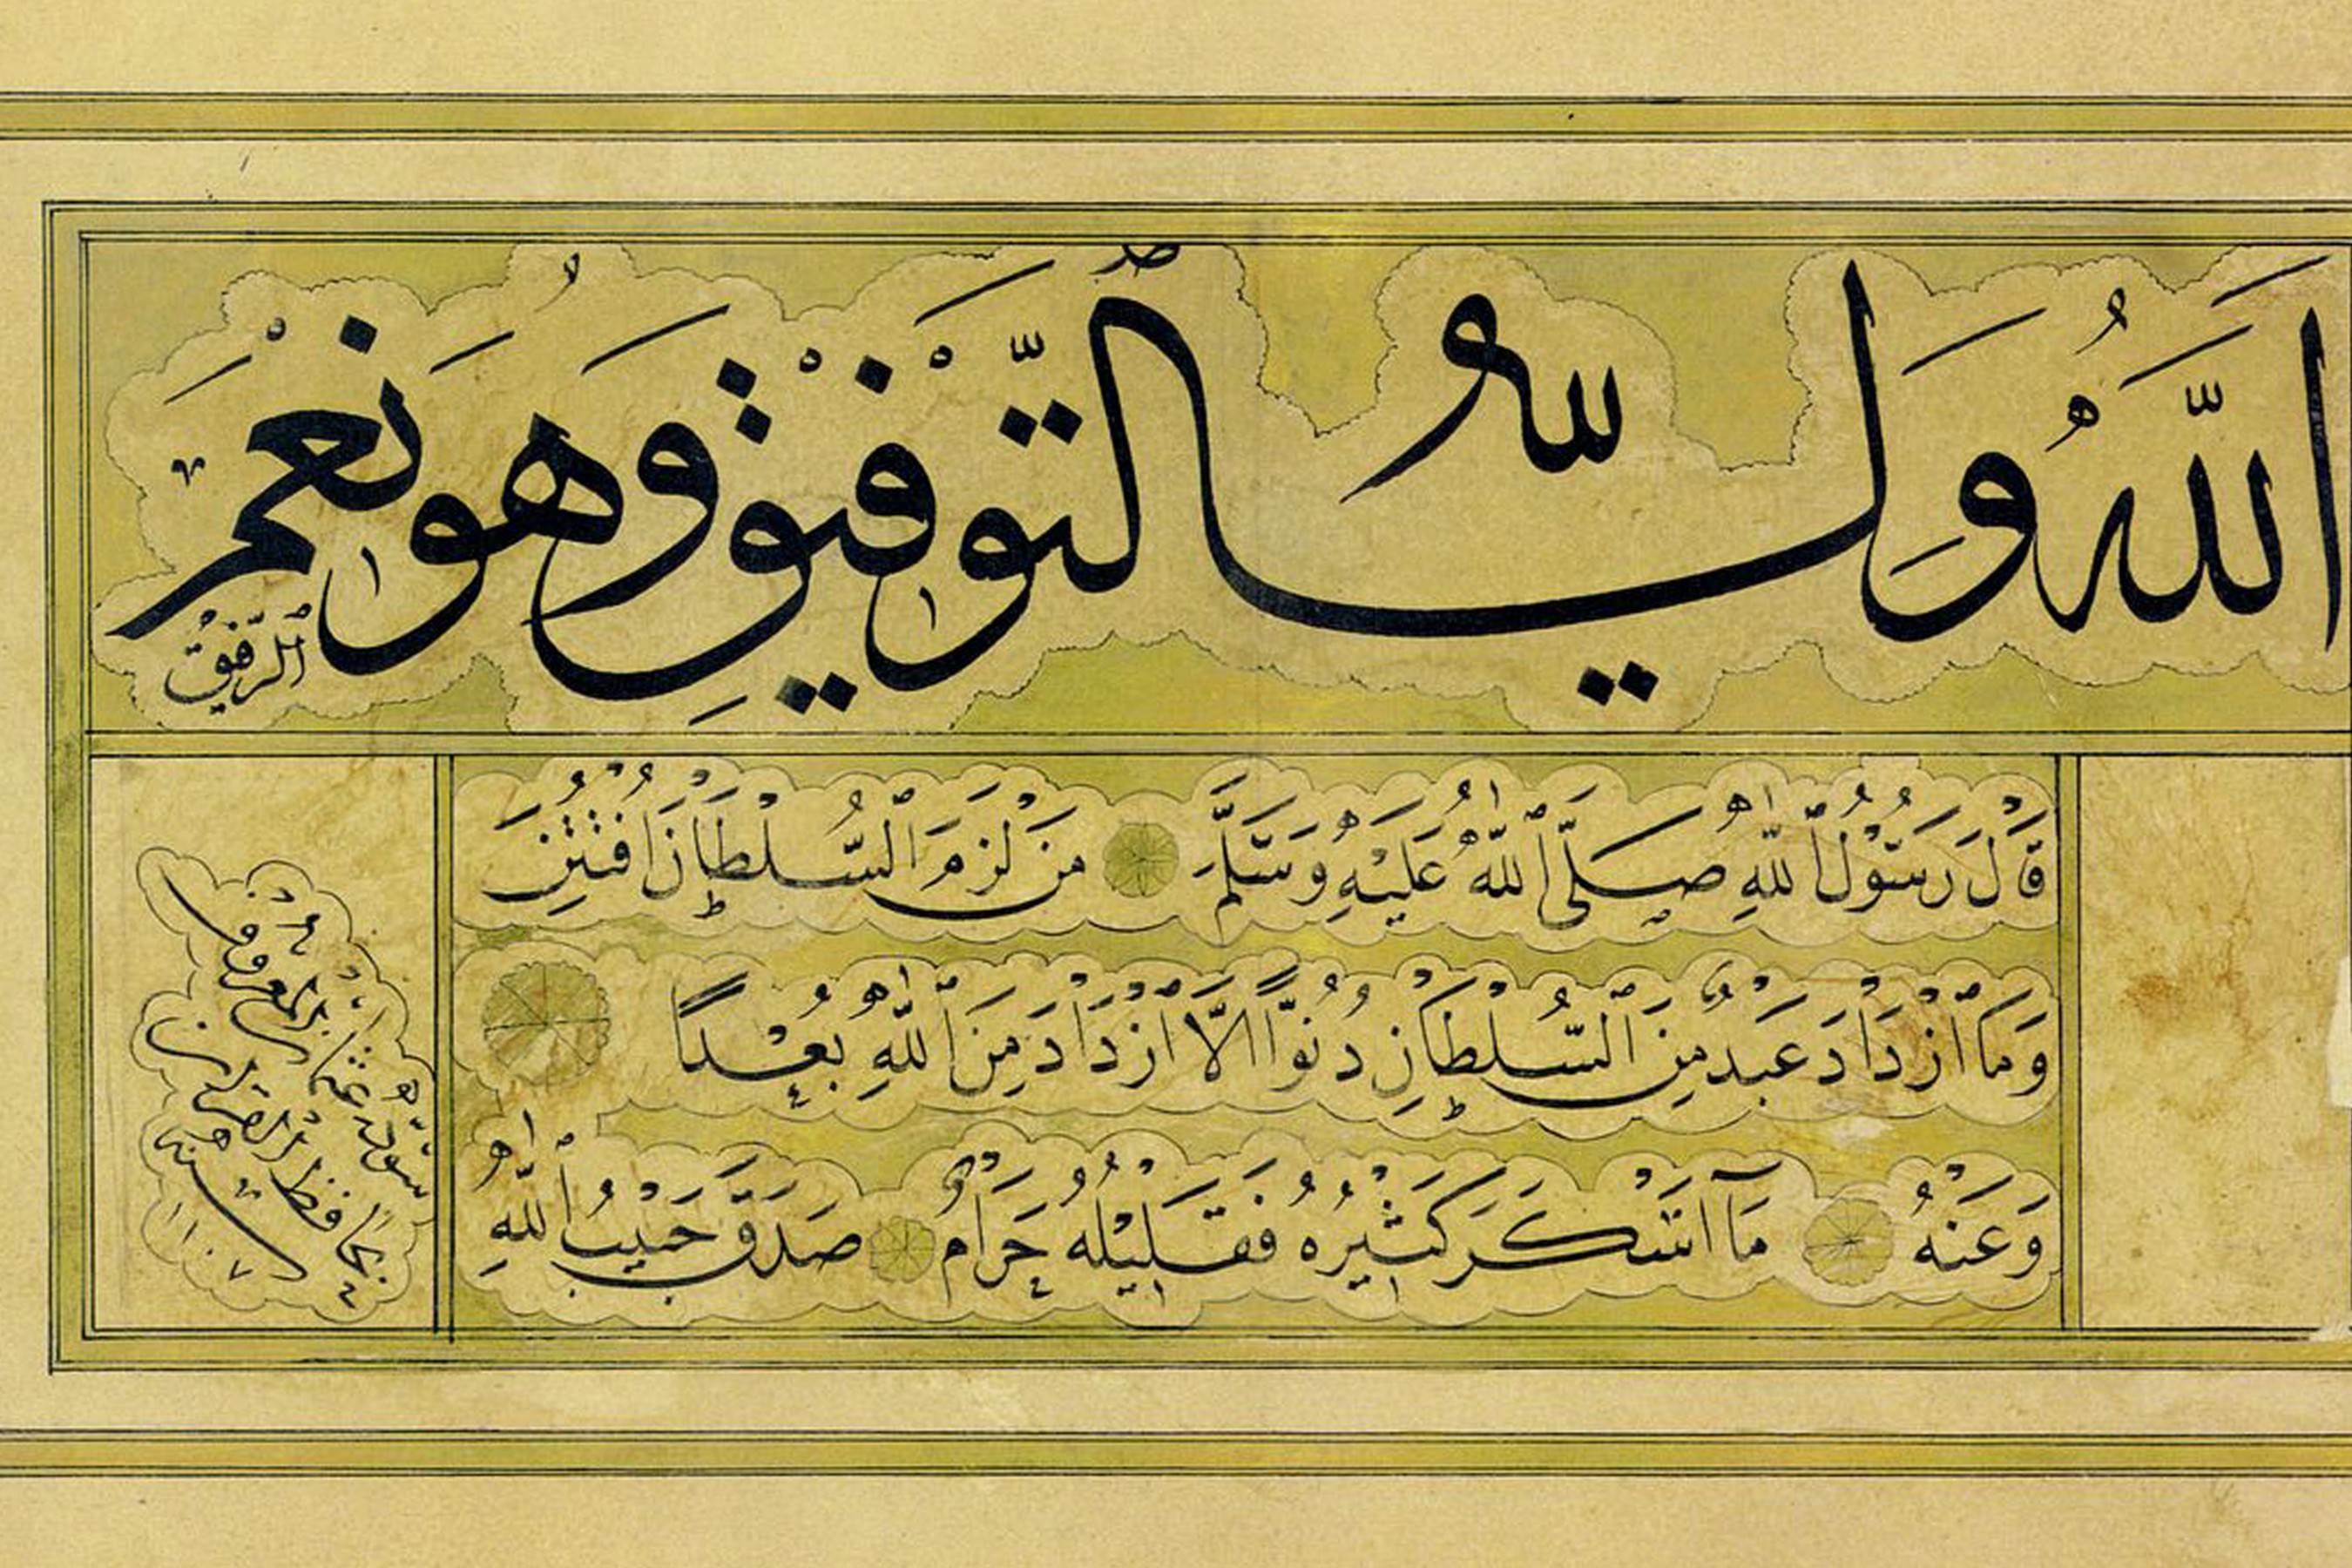 اَللّٰهُ وَلِيُّ التَّوْفِيقِ وَهُوَ نِعْمَ الرَّفِيقُ
قَالَ رَسُوْلُ اللهِ صَلَّى اللهُ عَلَيْهِ وَسَلَّمَ مَنْ لَزِمَ السُّلْطَانَ افْتُتِنَ
وَمَا ازْدَادَ عَبْدٌ مِنَ السُّلْطَانِ دُنُوًّا اِلَّا ازْدَادَ مِنَ اللهِ بُعْدًا
وَعَنْهُ مَآ اَسْكَرَ كَثِيْرُهُ فَقَلِيْلُهُ حَرَامٌ صَدَقَ حَبِيْبُ اللهِ
سوده عثمن المعروف
بحافظ القرآن
سنه ١١٠٧